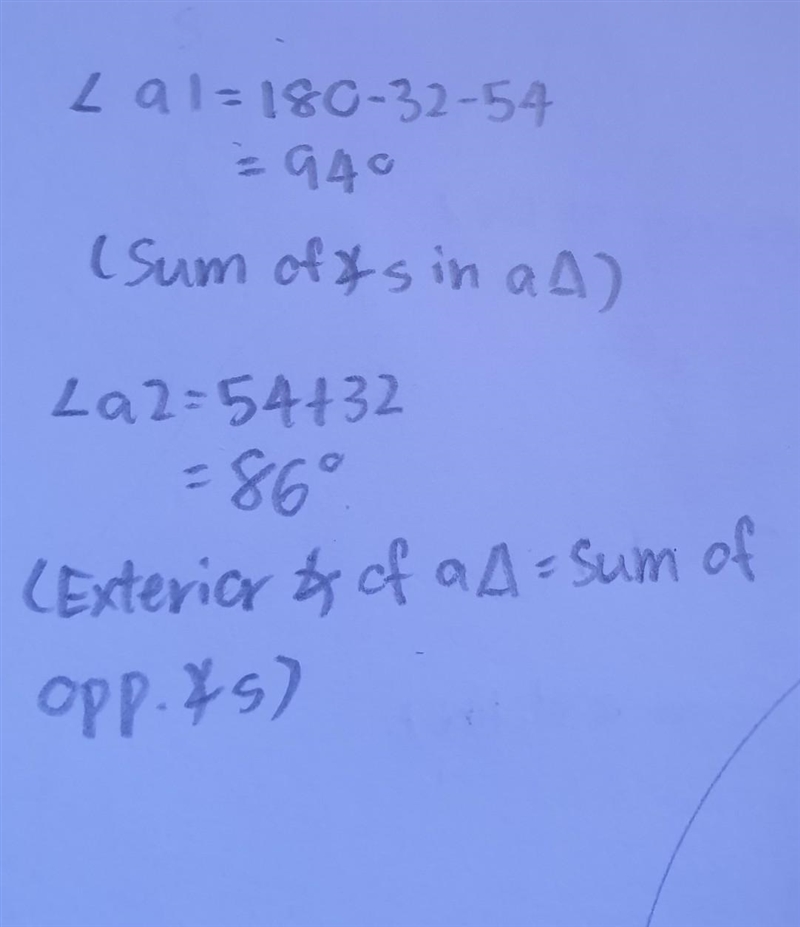 ∠a1=180-32-54
=94°
(Sum of ∡s in a Δ)
∠a2=54+32
=86°
(Exterior ∡ of a Δ = sum of
opp. ∡s)